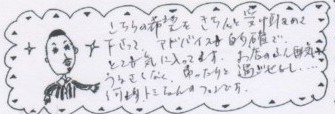 こちらの希望をきちんと受け止めて
下さって、アドバイスも的確で、
とても気に入ってます。お店の
うるさくなく、ゆったりと過ごせるし...
何よりトミなんのファンです。